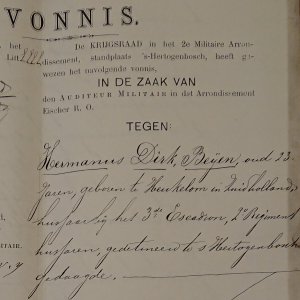 VONNIS.
het
Litt
De KRIJGSRAAD in het 2e Militaire Arron-
dissement, standplaats 's-Hertogenbosch, heeft ge-
wezen het navolgende vonnis,
IN DE ZAAK VAN
den AUDITEUR MILITAIR in dat Arrondissement
Eischer R. O.
TEGEN:
Hermanus Dirk Beijen, oud 23
Jaren, geboren te Heukelom in Zuidholland,
huzaar bij het 3de Escadron, 2e Regiment
huzaren, gedetineerd te 's Hertogenbosch
gedaagde.
ITAIR.